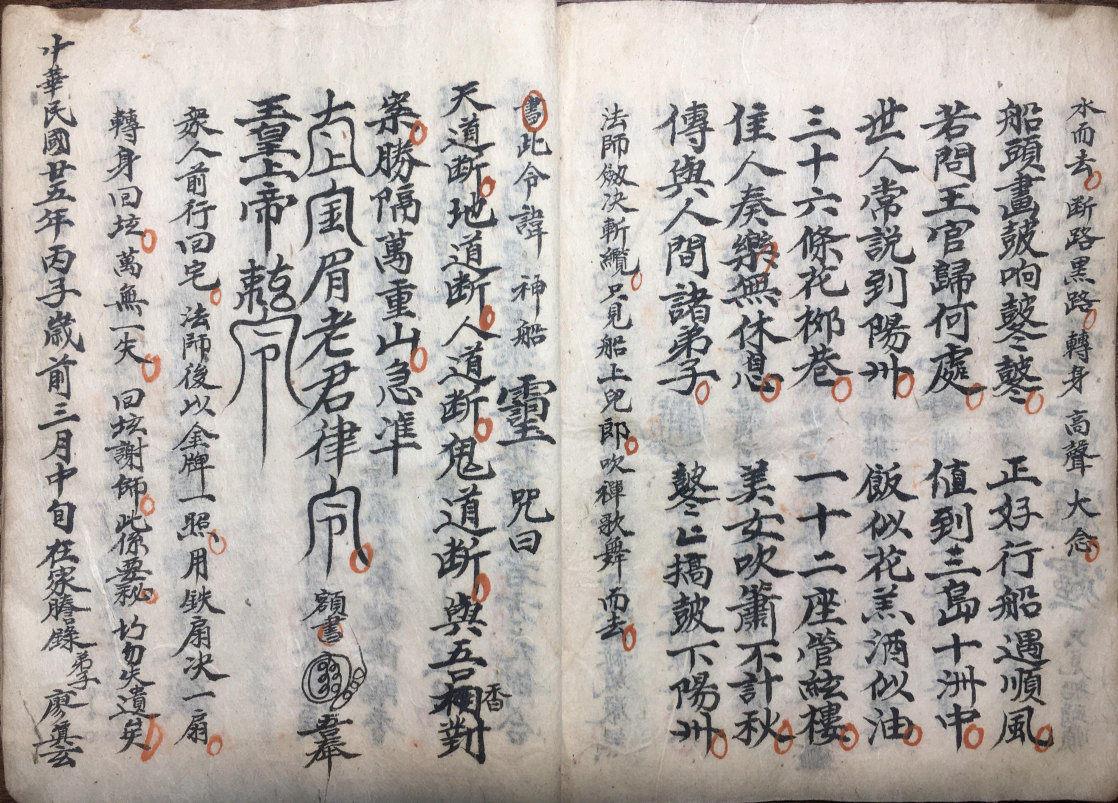 水而去断路黑路轉身高聲大念
船頭畫鼓响鼕々鼕 正好行船遇順風
若問王官歸何處 值到三島十洲中
世人常說到陽州 飯似花羔酒似油
三十六條花柳巷 一十二座管絃樓
佳人奏樂無休息 美女吹簫不計秋
傳與人間諸弟子 鼕々搞鼓下陽州
法師劔决斬纜只見船上兒郎吹禪歌舞而去
書此令諱神船 靈 咒曰
天道断地道断人道断鬼道断與吾相對
香
案勝隔萬重山急准
太上 眉老君律令 額書 吾奉
玉皇上帝 敕令
衆人前行回宅法師後以金牌一照用鉄扇决一扇
轉身回坛萬無一失回坛謝師此係要秘切勿失遺矣
中華民國廿五年丙子歲前三月中旬在家謄錄弟子廖真云